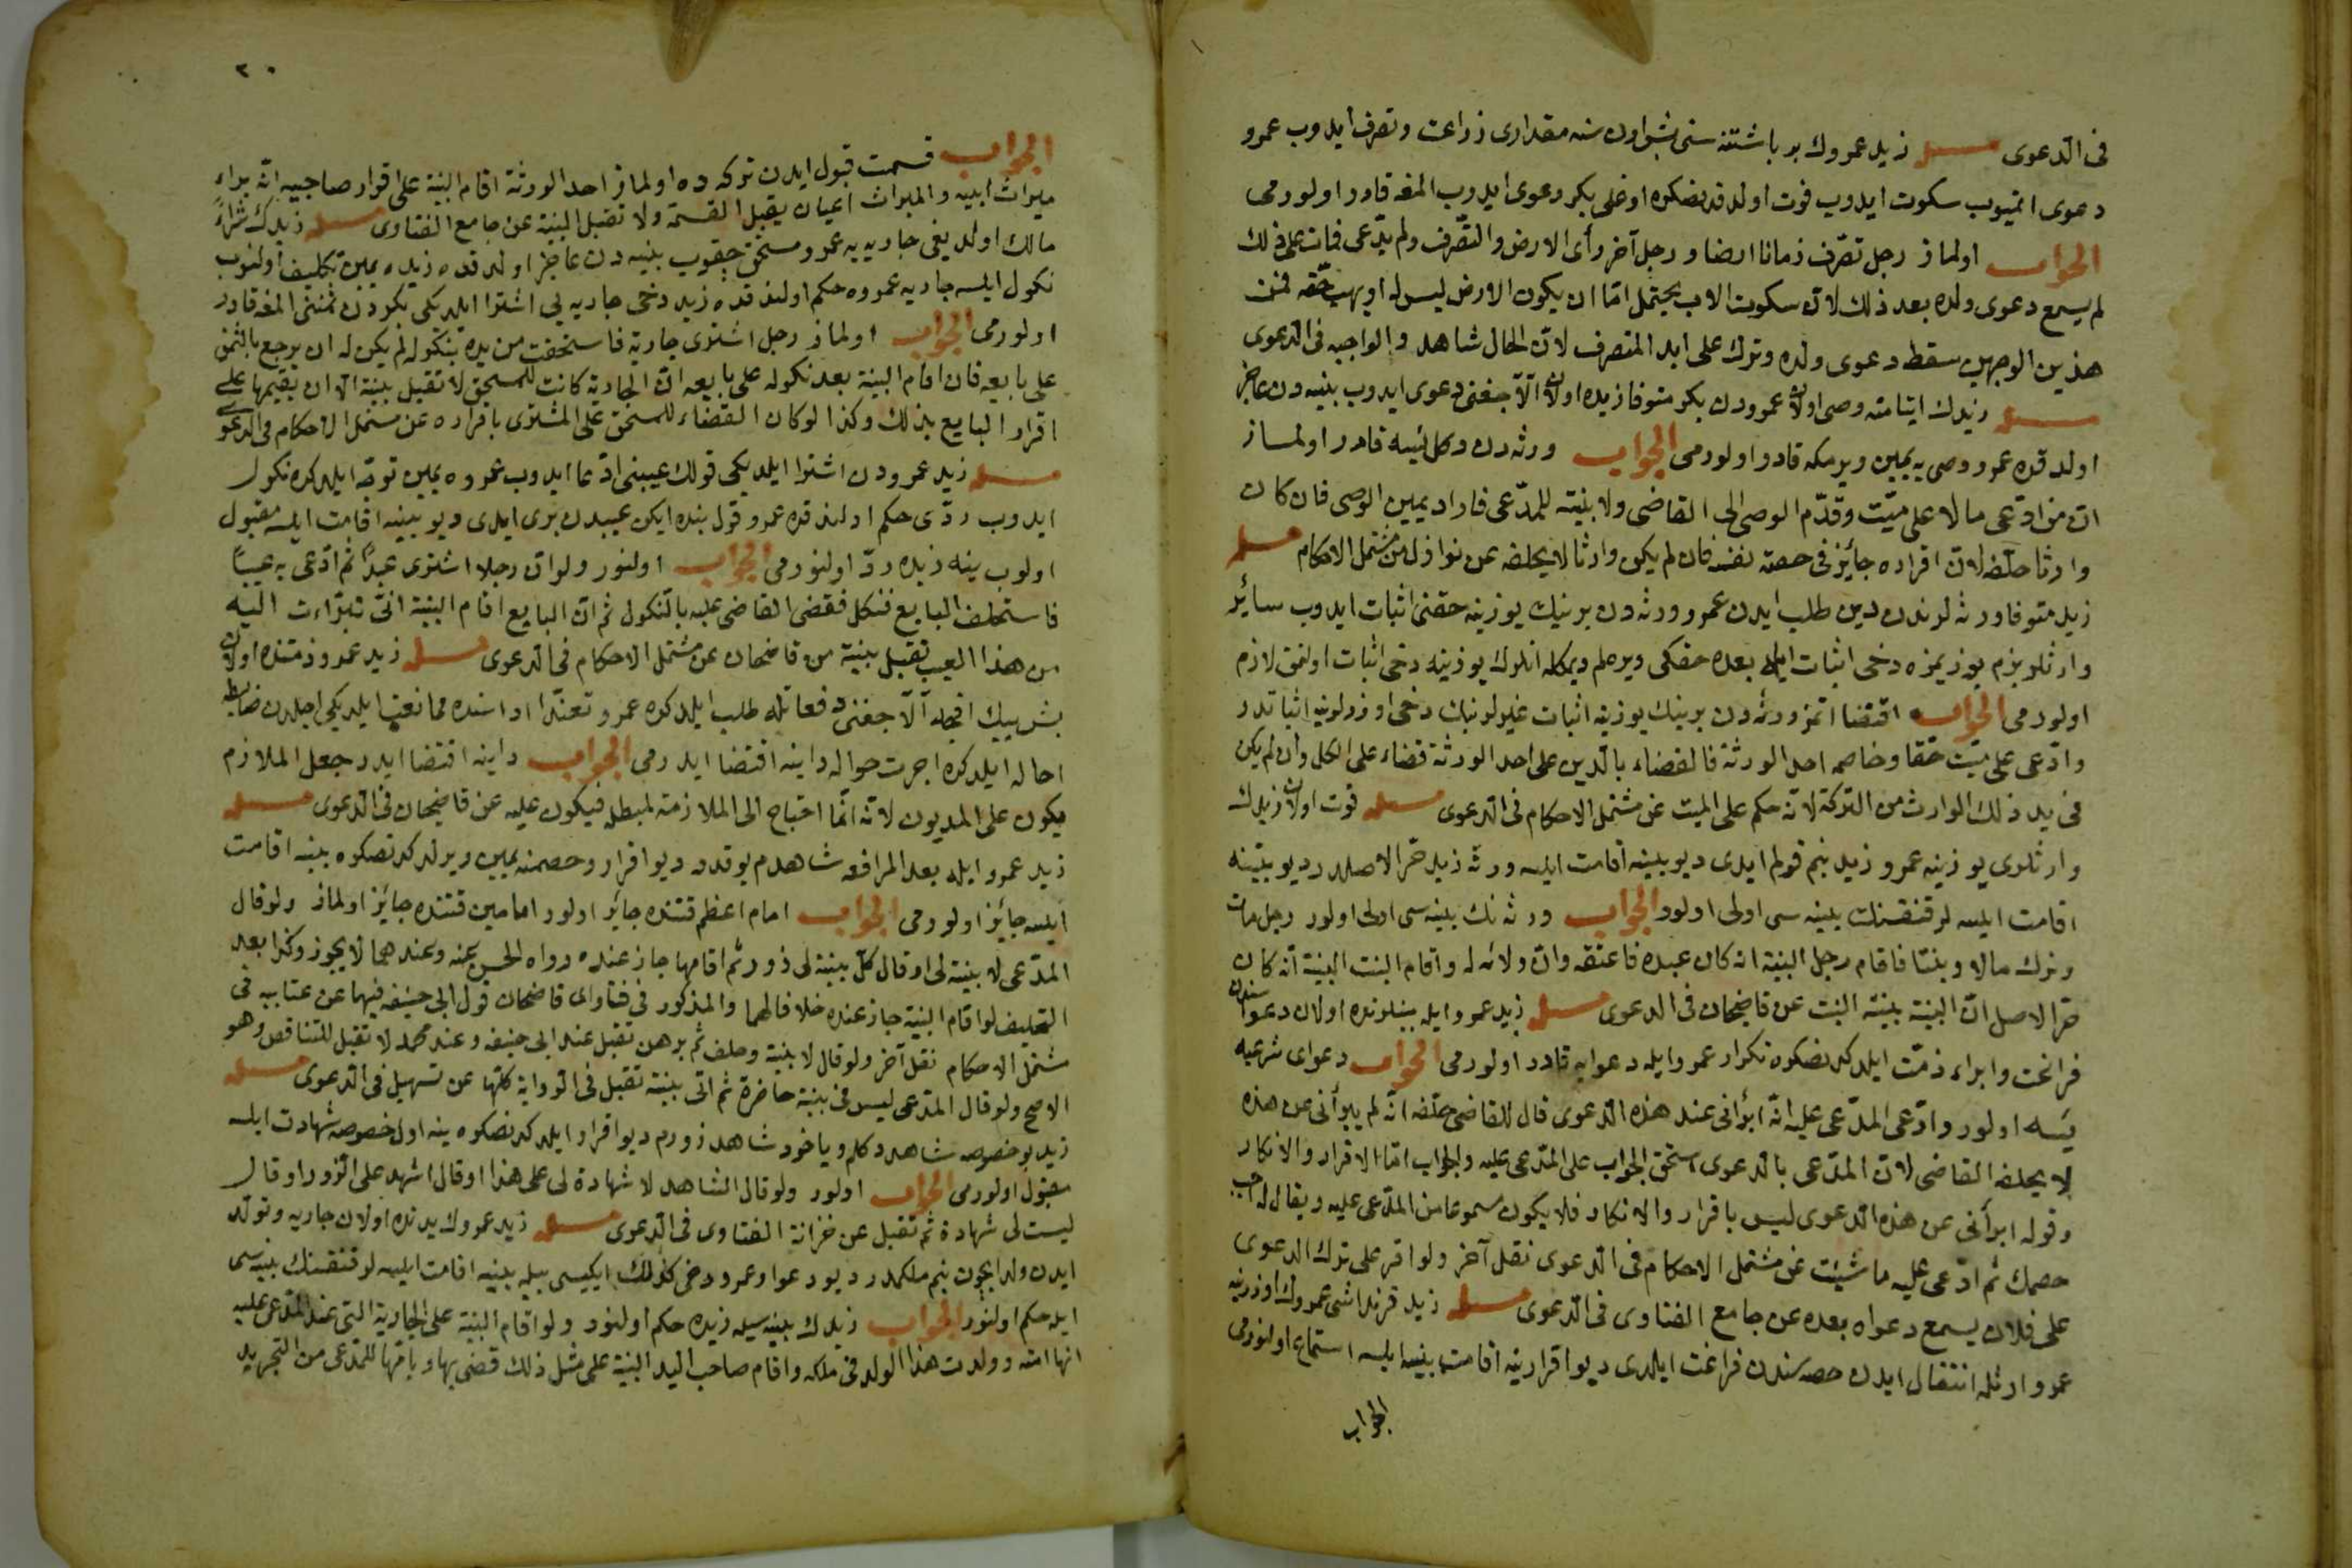 فى الدعوى مسئله زيد عمروك بر باشتنه سنى بش اون سنه مقدارى زراعت وتصرف ايدوب عمرو
دعوى اتميوب سكوت ايدوب فوت اولدقدنصكره اوغلى بكر دعوى ايدوب المغه قادر اولورمى
الجواب اولماز رجل تصرف زمانا ارضا ورجل آخر رأى الارض والتصرف ولم يدعى فمات على ذلك
لم يسمع دعوى ولده بعد ذلك لان سكوت الاب يحتمل اما ان يكون الارض ليس له او يهب حقه فمن
هذين الوجهين سقط دعوى ولده وترك على ايد المتصرف لان الحال شاهد والواجبه فى الدعوى
مسئله زيدك ايتامنه وصى اولان عمرودن بكر متوفا زيده اولان الاجغنى دعوى ايدوب بينه دن عاجز
اولدقده عمرو وصى يه يمين ويرمكه قادر اولورمى الجواب ورثه دن دكل ايسه قادر اولماز
ان من ادعى مالا على ميت وقدم الوصى الى القاضى ولا بينة للمدعى فاراد يمين الوصى فان كان
وارثا حلفه لان اقراره جائز فى حصته نفسه فان لم يكن وارثا لا يحلفه عن نوازل من مشتمل الاحكام مسئله
زيد متوفا ورثه لرندن دين طلب ايدن عمرو ورثه دن برينك يوزينه حقنى اثبات ايدوب سائر
وارثلر بزم يوزيمزه دخى اثبات ايله بعده حقكى ويره لم ديمكله انلرك يوزينه دخى اثبات اولنمق لازم
اولورمى الجواب اقتضا اتمز ورثه دن برينك يوزينه اثبات غيرلرينك دخى اوزرلرينه اثباتدر
وادعى على ميت حقا وخاصم احد الورثة فالقضاء بالدين على احد الورثة قضاء على الكل وان لم يكن
فى يد ذلك الوارث من التركة لانه حكم على الميت عن مشتمل الاحكام فى الدعوى مسئله فوت اولان زيدك
وارثلرى يوزينه عمرو زيد بنم قولم ايدى ديو بينه اقامت ايلسه ورثه زيد حر الاصلدر ديو بينه
اقامت ايلسه لر قنقسنك بينه سى اولى اولور الجواب ورثه نك بينه سى اولى اولور رجل مات
وترك مالا وبنتا فاقام رجل البينة انه كان عبده فاعتقه وان ولائه له واقام البنت البينة انه كان
حر الاصل ان البينة بينة البنت عن قاضيخان فى الدعوى مسئله زيد عمرو ايله بينلرنده اولان دعواسندن
فراغت وابراء ذمت ايلدكدنصكره تكرار عمرو ايله دعوايه قادر اولورمى الجواب دعواى شرعيه
يسه اولور وادعى المدعى عليه انه ابرأنى عند هذه الدعوى قال للقاضى حلفه انه لم يبرأنى عن هذه
لا يحلفه القاضى لان المدعى بالدعوى استحق الجواب على المدعى عليه والجواب اما الاقرار والانكار
وقوله ابرأنى عن هذه الدعوى ليس باقرار والانكار فلا يكون مسموعا من المدعى عليه ويقال له اجب
خصمك ثم ادعى عليه ما شيئت عن مشتمل الاحكام فى الدعوى نقل آخر ولو اقر على ترك الدعوى
على فلان يسمع دعواه بعده عن جامع الفتاوى فى الدعوى مسئله زيد قرنداشى عمروك اوزرينه
عمرو ارثله انتقال ايدن حصه سندن فراغت ايلدى ديو اقرارينه اقامت بينه ايلسه استماع اولنورمى
الجواب
٢٠
الجواب قسمت قبول ايدن تركه ده اولماز احد الورثة اقام البينة على اقرار صاحبيه انه براء
ميراث ابيه والميراث اعيان يقبل القسمة ولا تقبل البينة عن جامع الفتاوى مسئله زيدك شراءً
مالك اولديغى جاريه يه عمرو مستحق چقوب بينه دن عاجز اولدقده زيده يمين تكليف اولنوب
نكول ايلسه جاريه عمروه حكم اولندقده زيد دخى جاريه يى اشترا ايلديكى بكردن ثمننى المغه قادر
اولورمى الجواب اولماز رجل اشترى جارية فاستحقت من يده بنكوله لم يكن له ان يرجع بالثمن
على بايعه فان اقام البينة بعد نكوله على بايعه ان الجارية كانت للمستحق لا تقبل بينة الا ان يقيمها على
اقرار البايع بذلك وكذا لو كان القضاء للمستحق على المشترى باقراره عن مشتمل الاحكام فى الدعوى
مسئله زيد عمرودن اشترا ايلديكى قولك عيبنى ادعا ايدوب عمروه يمين توجه ايلدكده نكول
ايدوب ردى حكم اولندقده عمرو قول بنده ايكن عيبدن برى ايدى ديو بينه اقامت ايلسه مقبول
اولوب ينه زيده رد اولنورمى الجواب اولنور ولو ان رجلا اشترى عبدا ثم ادعى به عيبا
فاستحلف البايع فنكل فقضى القاضى عليه بالنكول ثم ان البايع اقام البينة انى تبراءت اليه
من هذا العيب تقبل بينة من قاضيخان عن مشتمل الاحكام فى الدعوى مسئله زيد عمرو ذمتنده اولان
بش بيك اقچه الاجغنى دفعاتله طلب ايلدكده عمرو تعندا اداسنده ممانعت ايلديكى اجلدن ضابطه
احاله ايلدكده اجرت حواله داينه اقتضا ايدرمى الجواب داينه اقتضا ايدر جعل الملازم
يكون على المديون لانه انما احتياج الى الملازمة لمبطله فيكون عليه عن قاضيخان فى الدعوى مسئله
زيد عمرو ايله بعد المرافعه شاهدم يوقدر ديو اقرار وخصمنه يمين ويردلدكدنصكره بينه اقامت
ايلسه جائز اولورمى الجواب امام اعظم قتنده جائز اولور امامين قتنده جائز اولماز ولو قال
المدعى لا بينة لى او قال كل بينة لى زور ثم اقامها جاز عنده رواه الحسن عنه وعندهما لا يجوز وكذا بعد
التحليف لو اقام البينة جاز عنده خلافا لهما والمذكور فى فتاواى قاضيخان قول ابى حنيفه فيهما عن عتابيه فى
مشتمل الاحكام نقل آخر ولو قال لا بينة وحلف ثم برهن تقبل عند ابى حنيفه وعند محمد لا تقبل للتناقص وهو
الاصح ولو قال المدعى ليس فى بينة حاضرة ثم اتى بينة تقبل فى الرواية كلها عن تسهيل فى الدعوى مسئله
زيد بو خصوصه شاهد دكلم وياخود شاهد زورم ديو اقرار ايلدكدنصكره ينه اول خصوصه شهادت ايلسه
مقبول اولورمى الجواب اولور ولو قال الشاهد لا شهادة لى على هذا او قال اشهد على الزور او قال
ليست لى شهادة ثم تقبل عن خزانة الفتاوى فى الدعوى مسئله زيد عمروك يدنده اولان جاريه وتولد
ايدن ولد ايچون بنم ملكمدر ديو دعوا وعمرو دخى كذلك ايكيسى بيله بينه اقامت ايلسه لر قنقسنك بينه سى
ايله حكم اولنور الجواب زيدك بينه سيله زيده حكم اولنور ولو اقام البينة على الجارية التى عند المدعى عليه
انها امته وولدت هذا الولد فى ملكه واقام صاحب اليد البينة على مثل ذلك قضى بها وبابنها للمدعى من التجريد